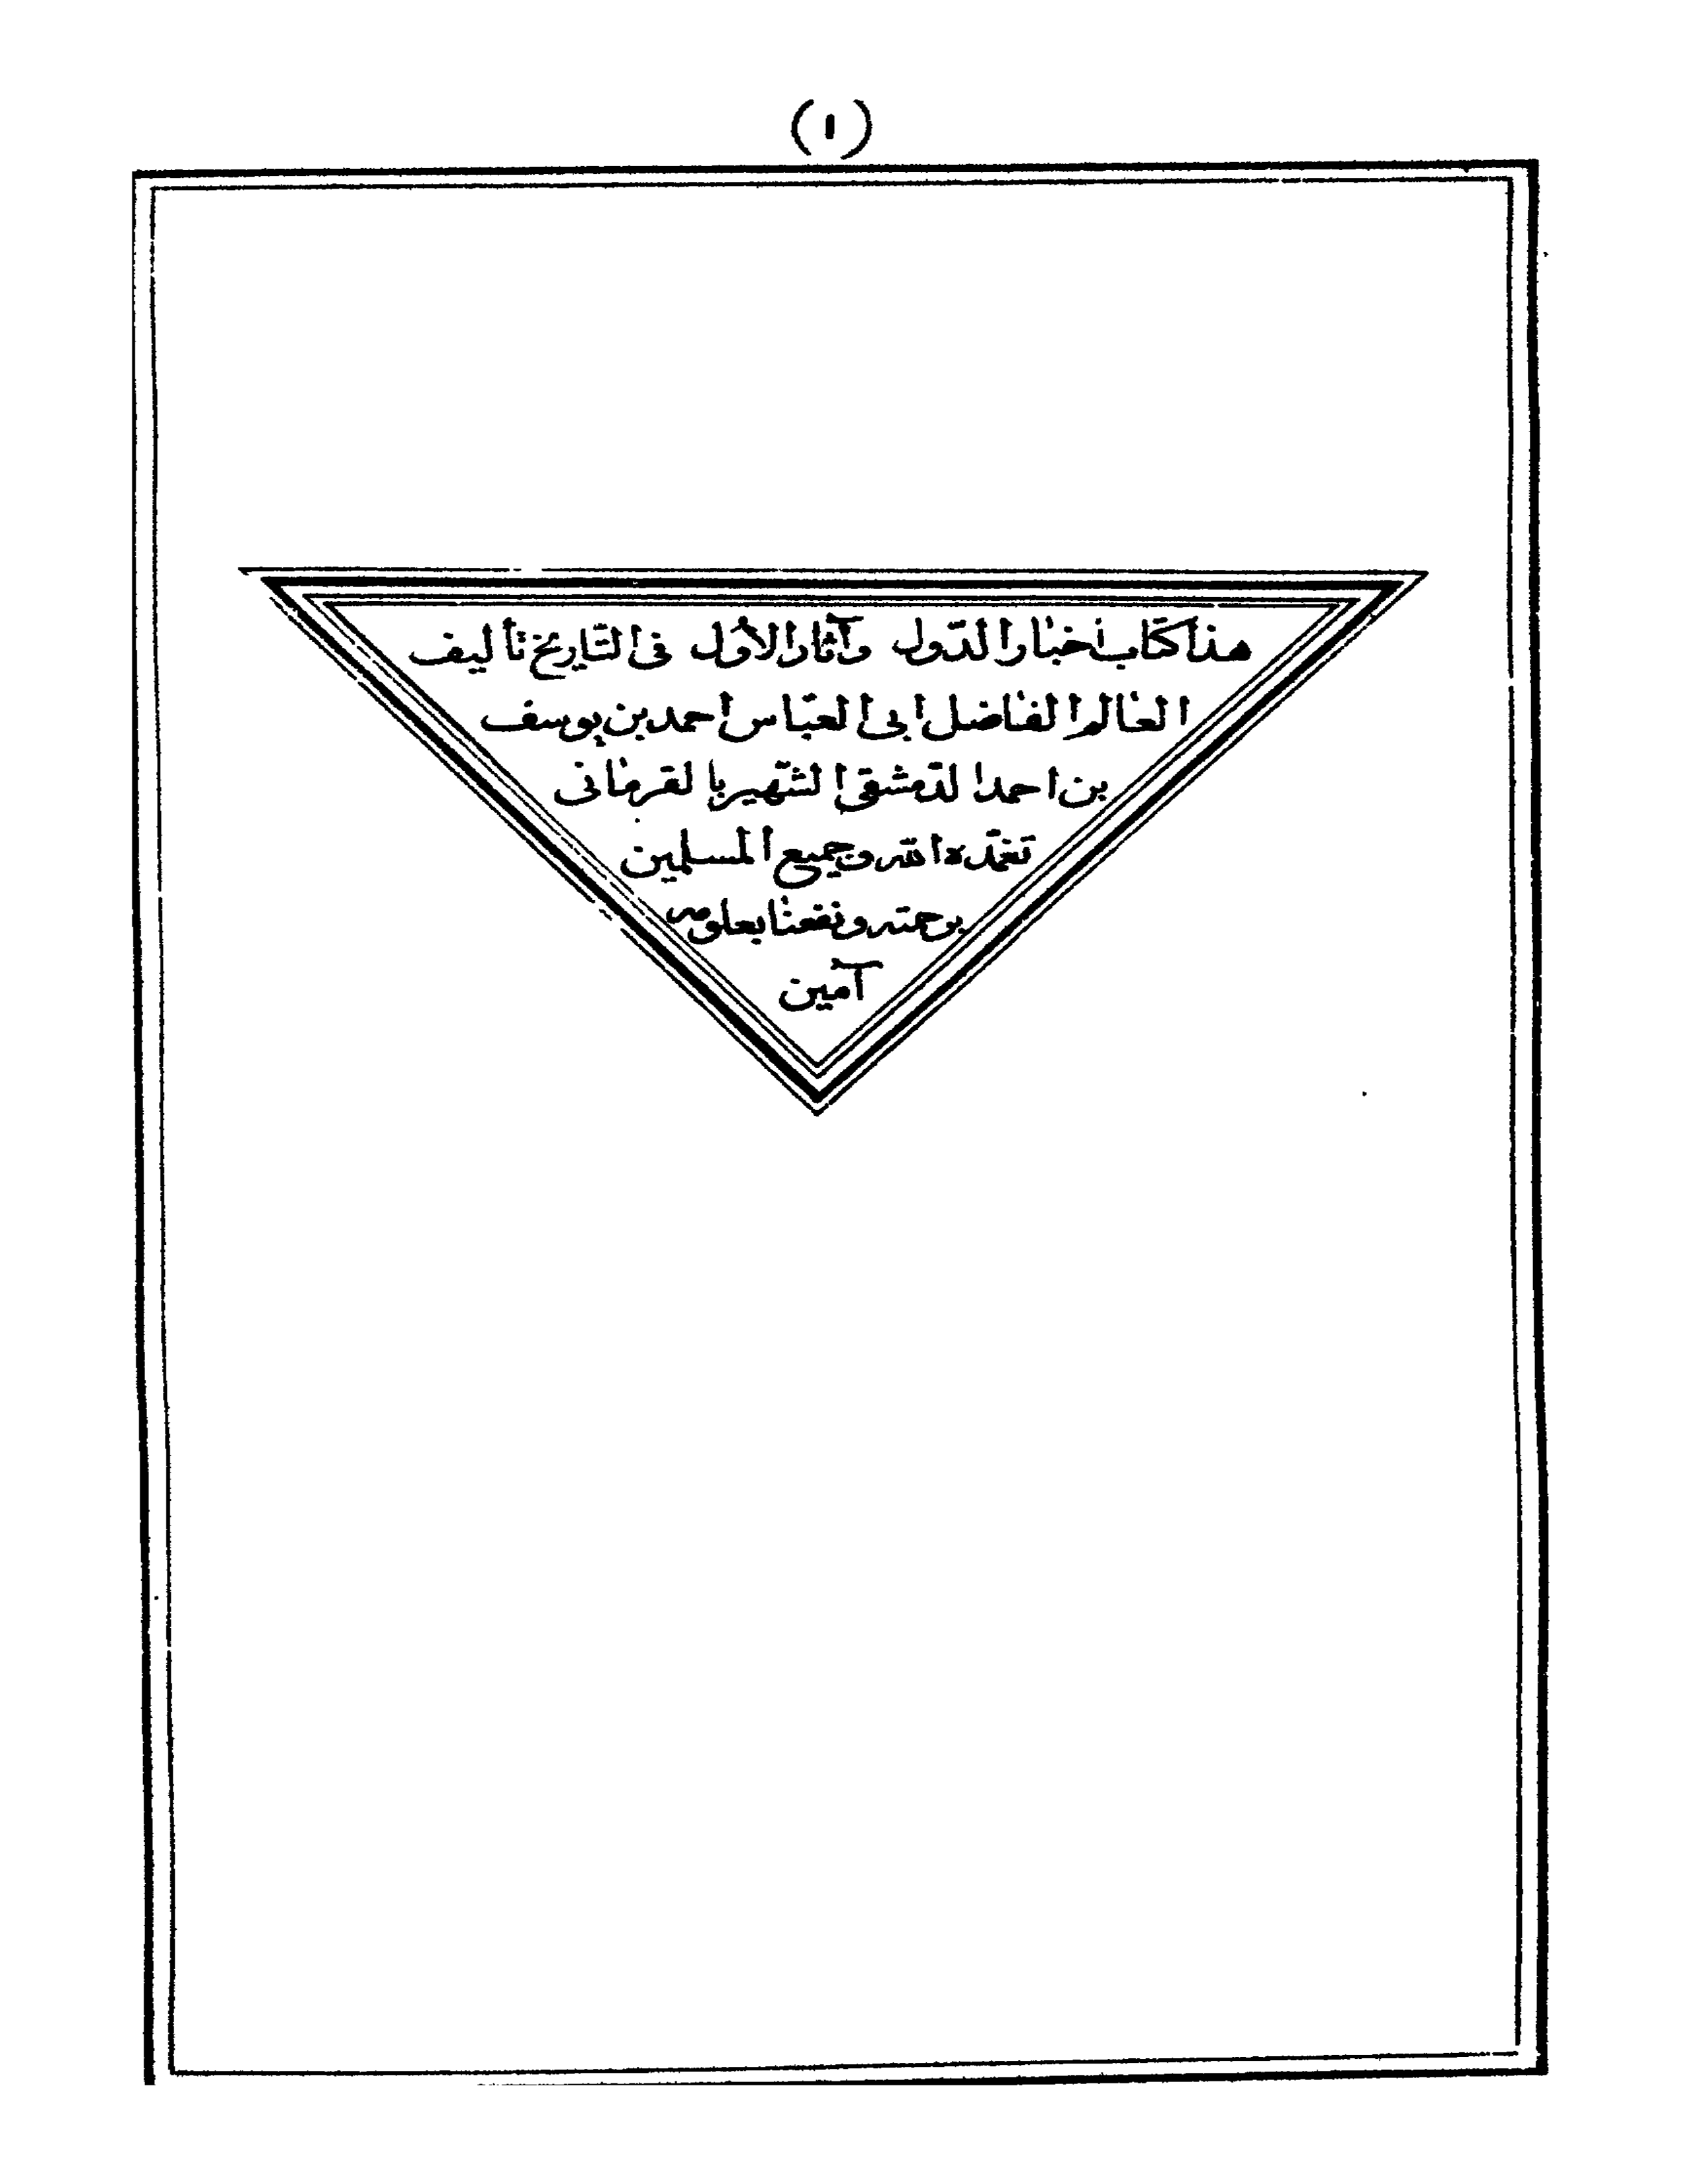 (١)
هذا كتاب أخبار الدّول وآثار الأول فى التّاريخ تأليف
العالم الفاضل ابى العبّاس احمد بن يوسف
بن احمد الدّمشقى الشّهير بالقرمانى
تغمّده الله وجميع المسلمين
برحمته ونفعنا بعلومه
آمين